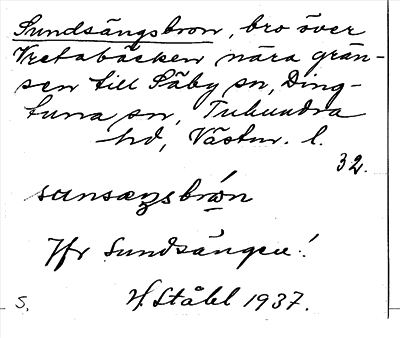 Sundsängsbron, bro över
Vretabäcken nära grän-
sen till Säby sn, Ding-
tuna sn, Tuhundra
hd, Västm. l.
32.
sunsæŋsbrón
Jfr Sundsängen!
S. H. Ståhl 1937.